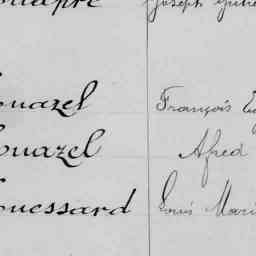 Joseph
ouazel François
ouazel Alfred
ouessard Louis Mari